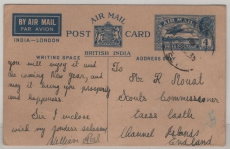 BY AIR MAIL
PAR AVION
INDIA-LONDON
AIR MAIL
POST CARD
BRITISH INDIA
WRITING SPACE
ADDRESS
you will enjoy it and
the coming New Year, and
may it bring you prosperity
and happiness.
Sir I enclose
with my
To
Mr
Scouts Commissioner
Channel Islands
England